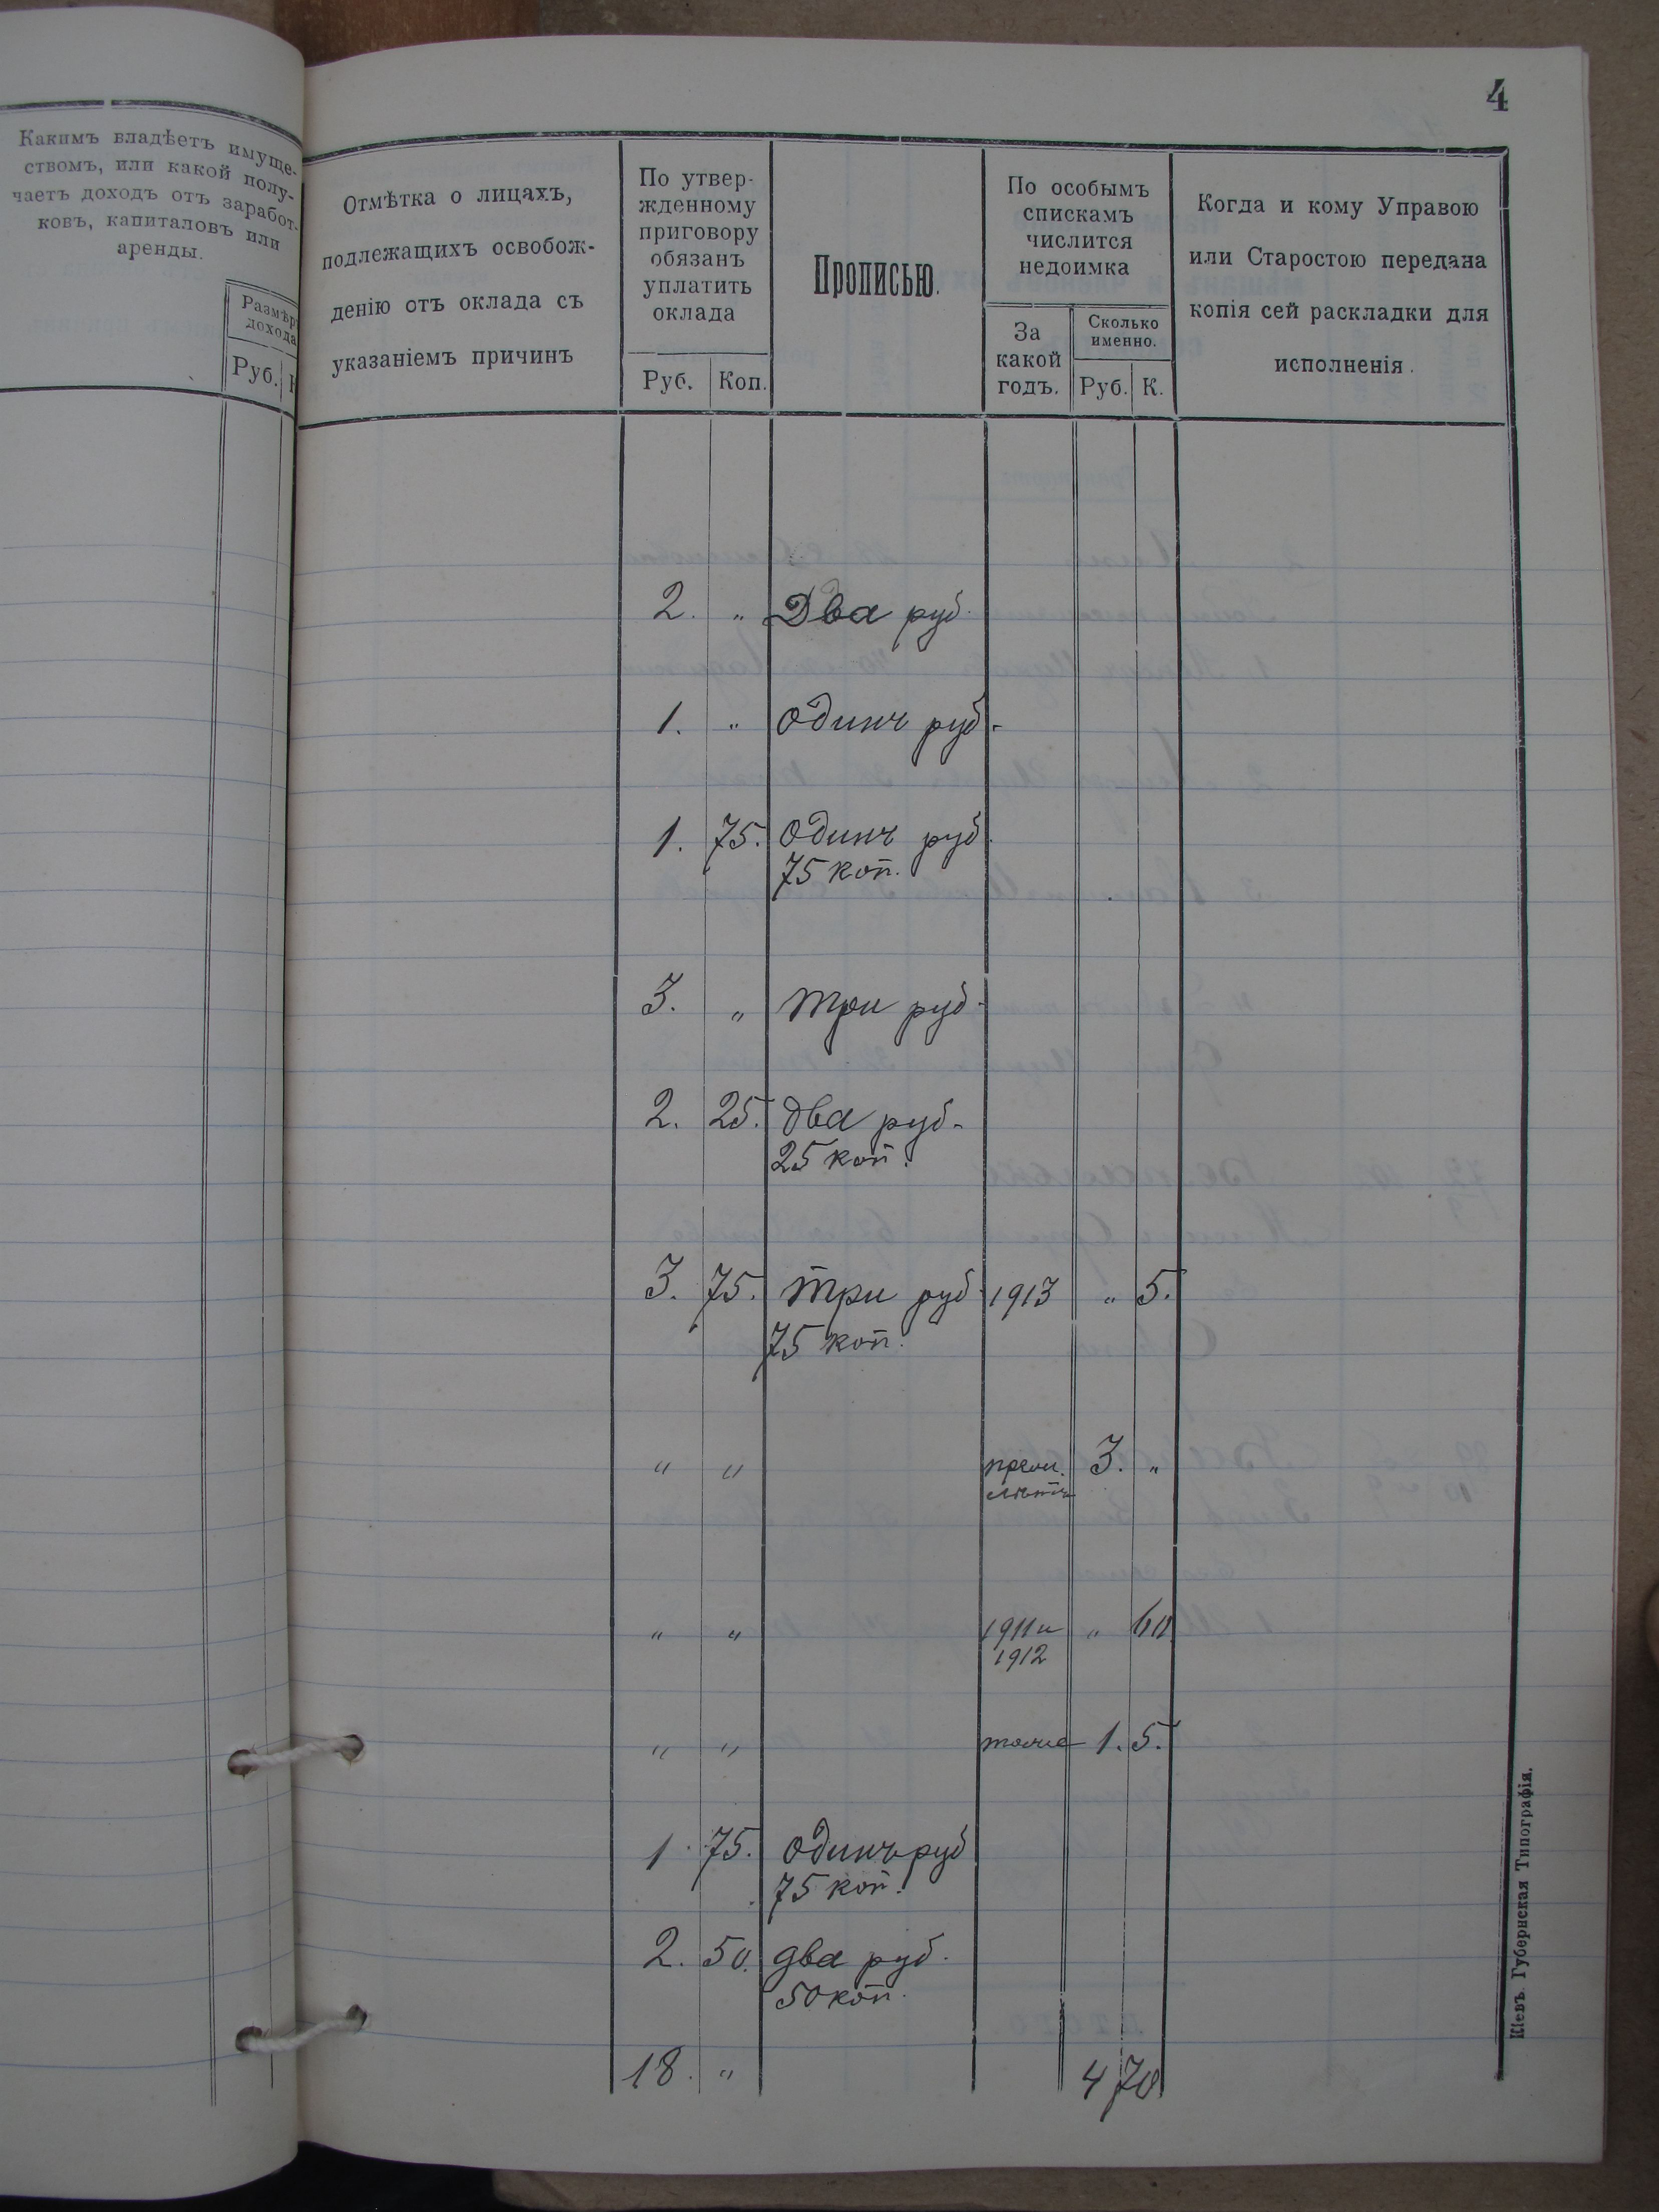 4
Какимъ владѣетъ имуще-
ствомъ, или какой полу-
чаетъ доходъ отъ заработ-
ковъ, капиталовъ или
аренды.
Размѣръ
дохода
Руб.
Отмѣтка о лицахъ,
подлежащихъ освобож-
денію отъ оклада съ
указаніемъ причинъ
По утвер-
жденному
приговору
обязанъ
уплатить
оклада
Руб. Коп.
Прописью.
По особымъ
спискамъ
числится
недоимка
За
какой
годъ.
Сколько
именно.
Руб. К.
Когда и кому Управою
или Старостою передана
копія сей раскладки для
исполненія.
2. „ Два руб.
1. „ Одинъ руб.
1. 75. Одинъ руб.
75 коп.
3. „ Три руб.
2. 25. два руб.
25 коп.
3. 75. Три руб. 1913 „ 5.
75 коп.
„ „ 3. „
„ „ 1911 и „ 60
1912
„ „ тоже 1. 5.
1. 75. Одинъ руб
75 коп.
2. 50. два руб.
50 коп.
18. „ 4 70
Кіевъ. Губернская Типографія.